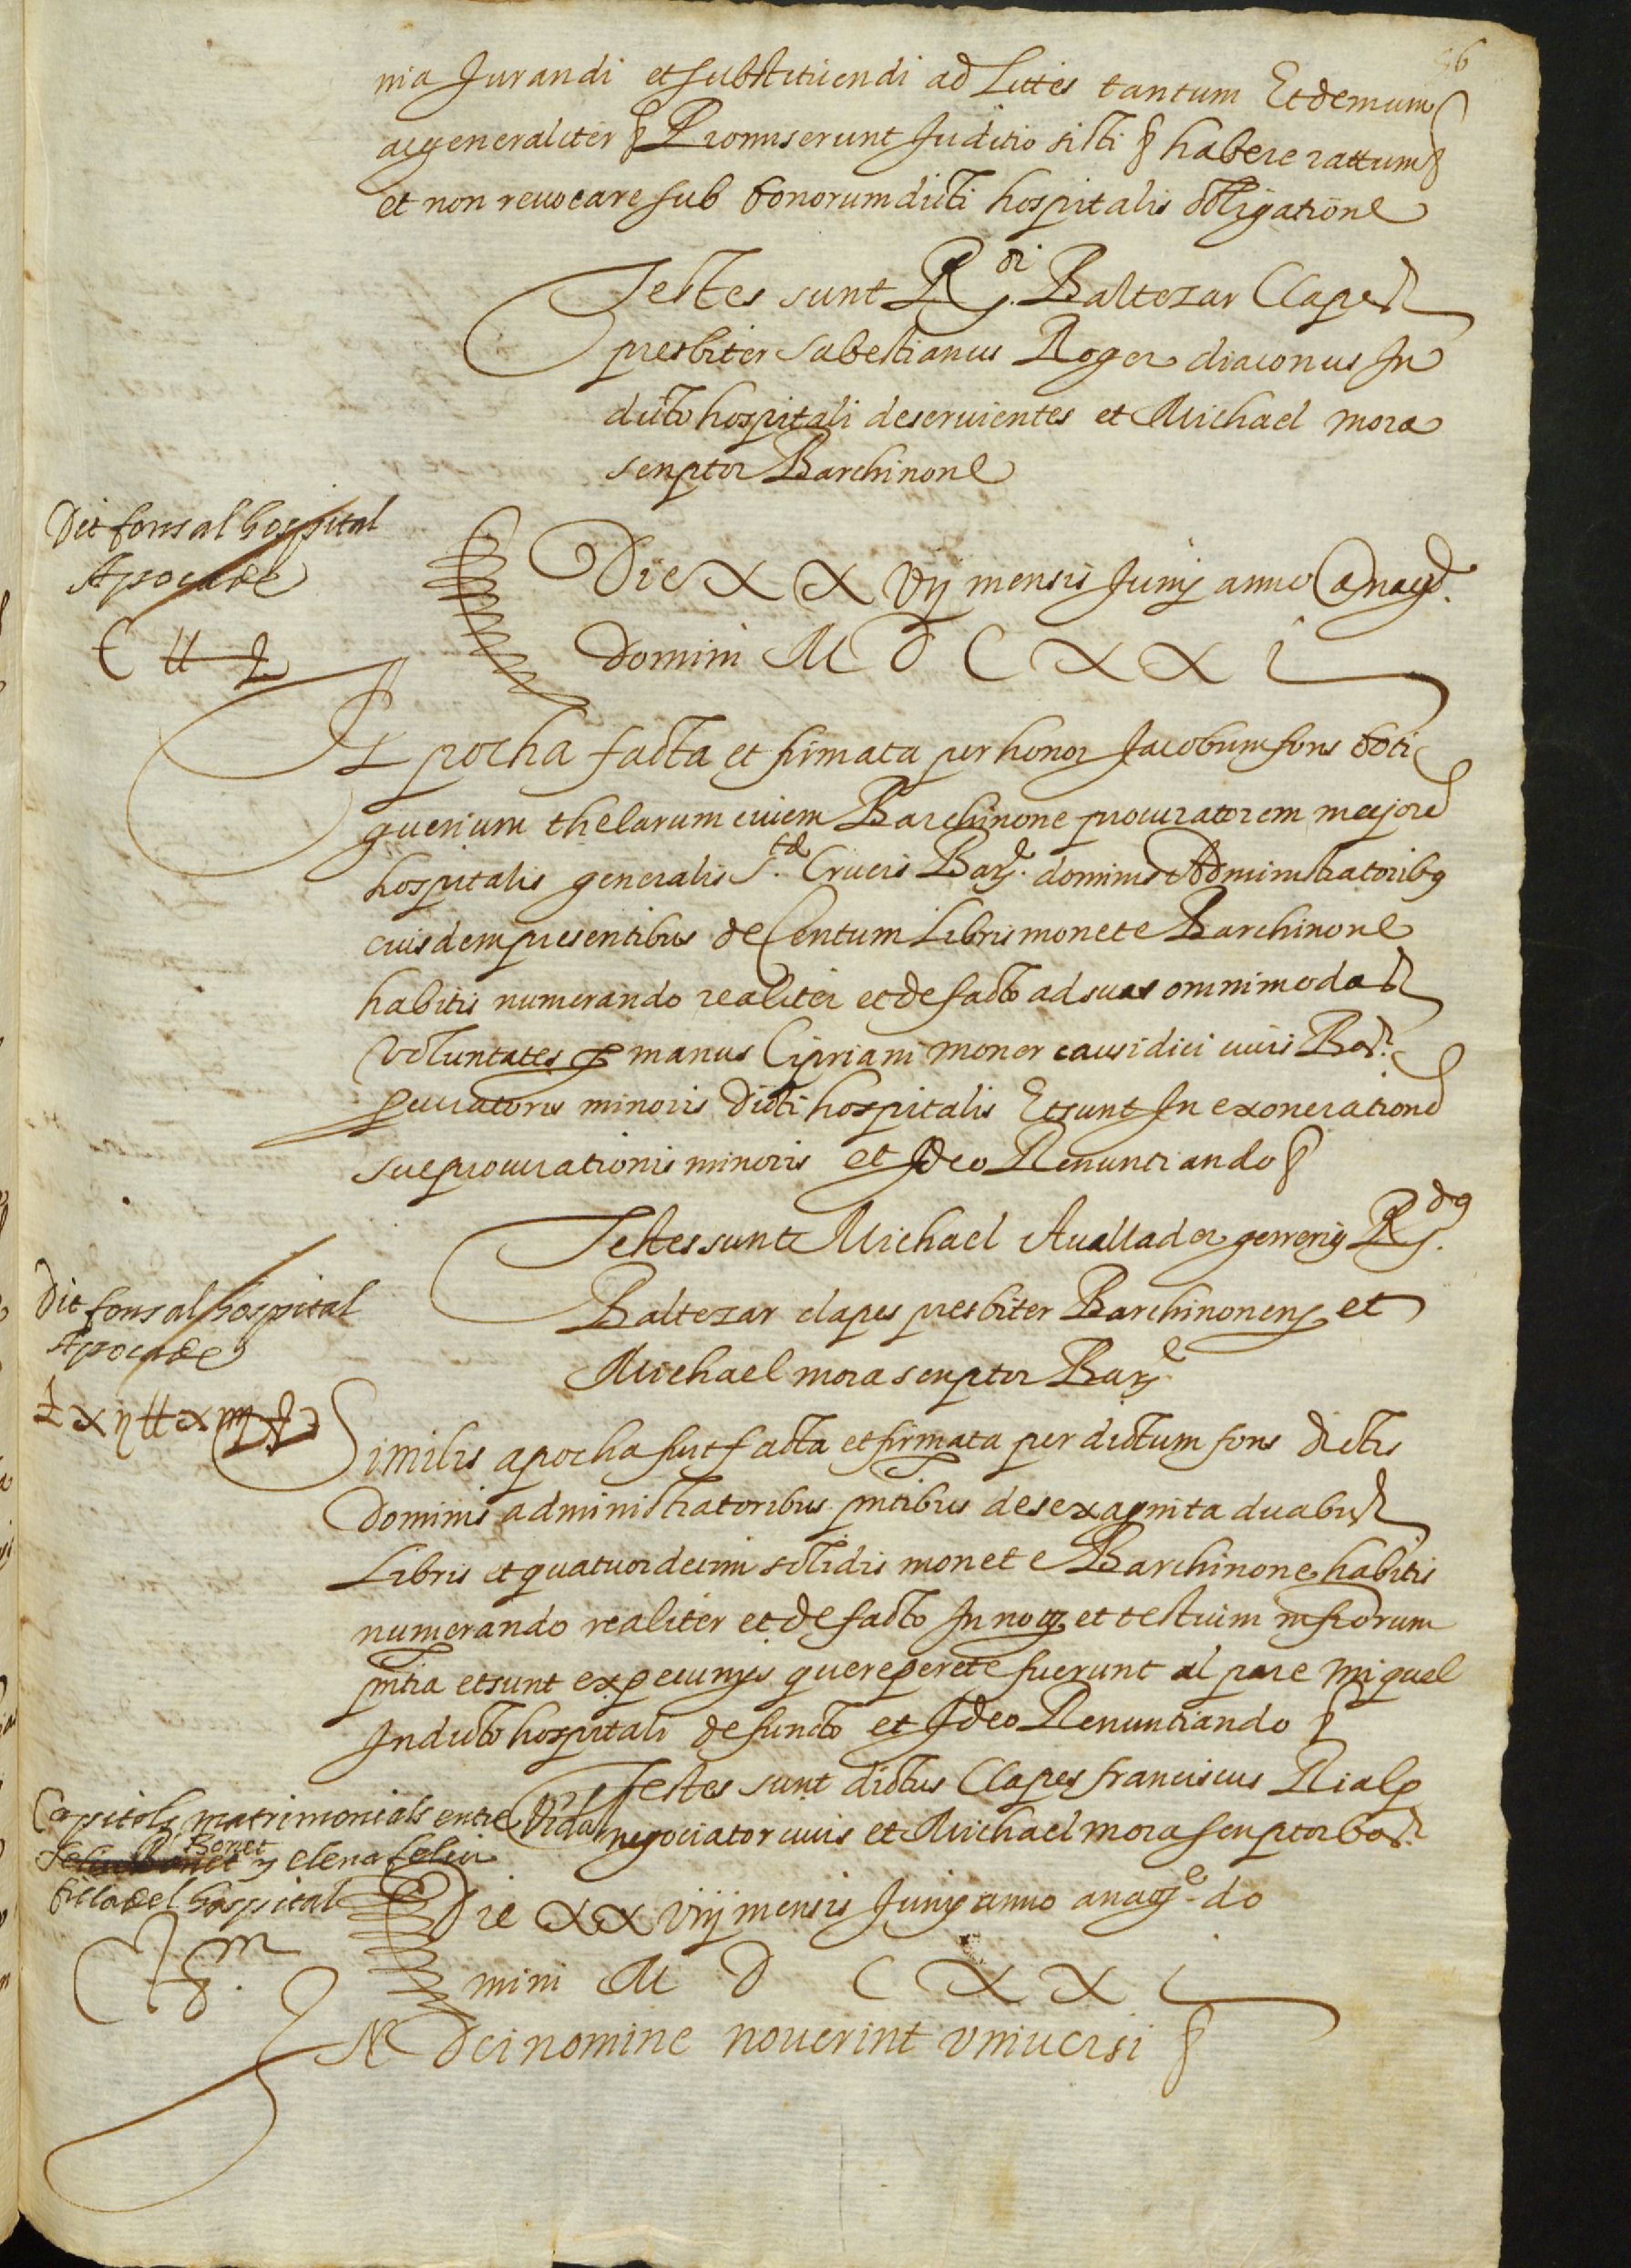 56
nia Jurandi et substituendi ad Littes tantum Et demum
ac generaliter § Promiserunt Juditio sisti § habere rattum §
et non revocare sub bonorum dicti hospitalis obligatione
Testes sunt R.di Baltezar Clapes
presbiter Sabestianus Roger diaconus In
dicto hospitali deservientes et Michael mora
scriptor Barchinone
Dit fons al hospital
Apoca de
C ll
Die XXvij mensis Junij anno a nayd.
Domini M D C X X i
Apocha facta et firmata per honor Jacobum fons boti
guerium thelarum civem Barchinone procuratorem majore
hospitalis generalis S.te Crucis Bar. dominis Administratoribus
eiusdem presentibus de Centum Libris monete Barchinone
habitis numerando realiter et de facto ad suas omnimodas
voluntates per manus Cipriani moner causidici civis Bar.
procuratoris minoris dicti hospitalis Et sunt In exoneratione
sue procurationis minoris et Ideo Renuntiando §
Testes sunt Michael Avallador gerrerius R.dus
Baltezar clapes presbiter Barchinonens et
Michael mora scriptor Bar.e
Dit fons al hospital
Apoca de
Lxij ll xiiij
Similis apocha fuit facta et firmata per dictum fons dictis
Dominis administratoribus pntibus de sexaginta duabus
Libris et quatuordecim solidis monete Barchinone habitis
numerando realiter et de facto In no et testium infrorum
pntia et sunt ex pecunijs que reperete fuerunt al pare miquel
In dicto hospitali defuncto et Ideo Renuntiando §
Testes sunt dictus Clapes franciscus Rialp
negociator civis et Michael mora scriptor bar.
Capitols matrimonials entre Vidal
Bonet y elena feliu
filla del hospital
Die XXviij mensis Junij anno a nag.e do
mini M D C X X i
IN Dei nomine noverint universi §